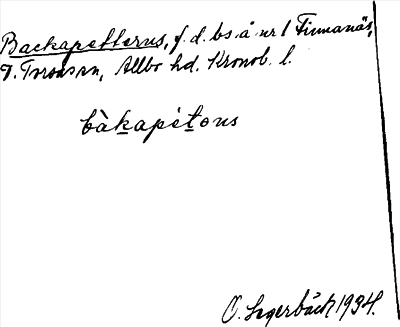 Backapetterus, f. d. bs å nr 1 Finnanäs,
T. Torsås sn, Allbo hd. Kronob. l.
bàkapétɵns
O. Segerbäck 1934.